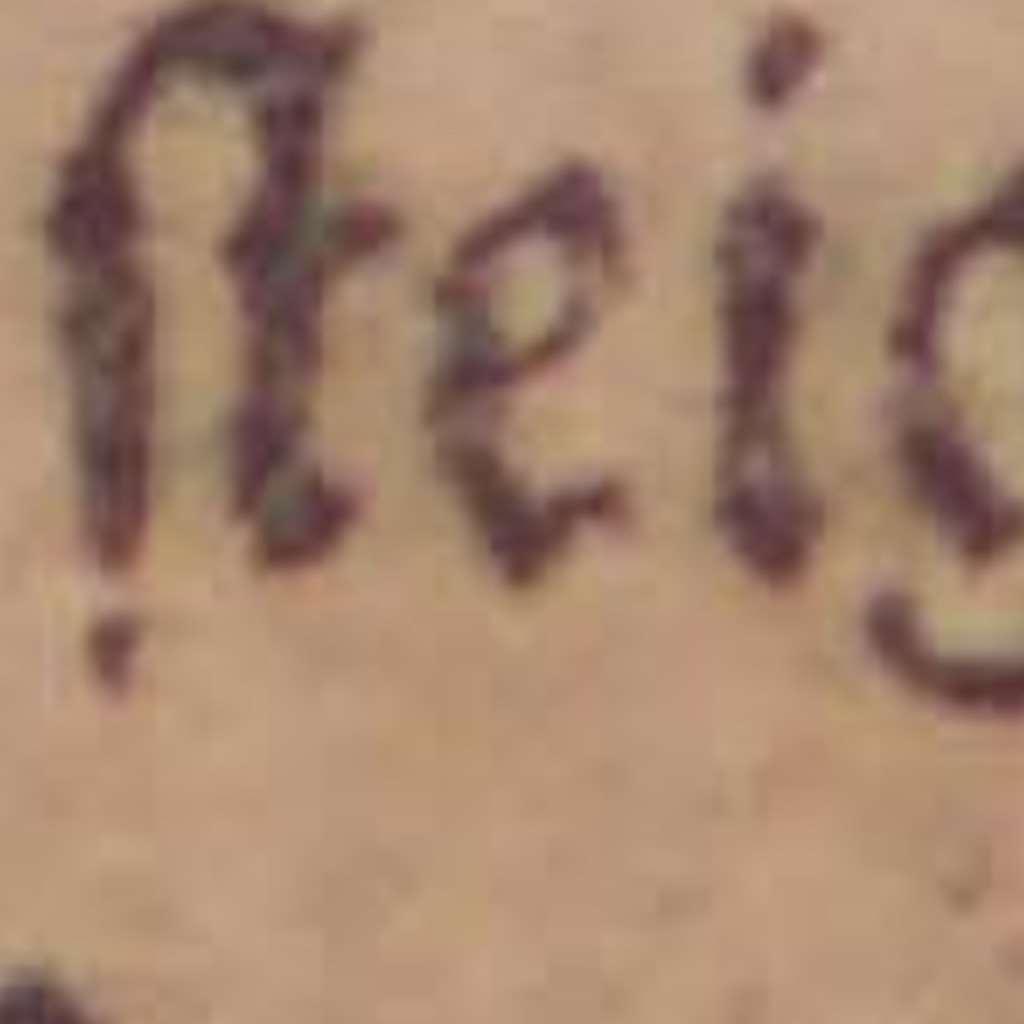 ſteig